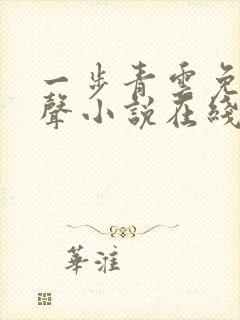 一步青雲免
聲小說在綫
華淮